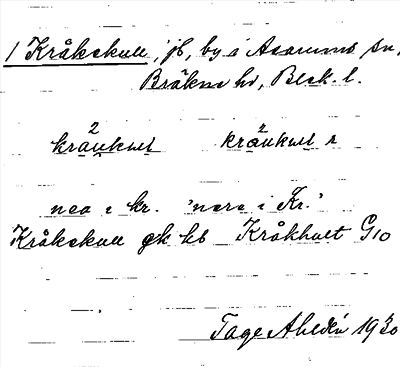 1 Kråkekull, jb, by i Asarums sn,
Bräkne hd, Blek. l.
kråukull kråukull
nea i kr. 'nere i Kr.'
Kråkekull gk kb Kråkhult G10
Tage Ahldén 1930